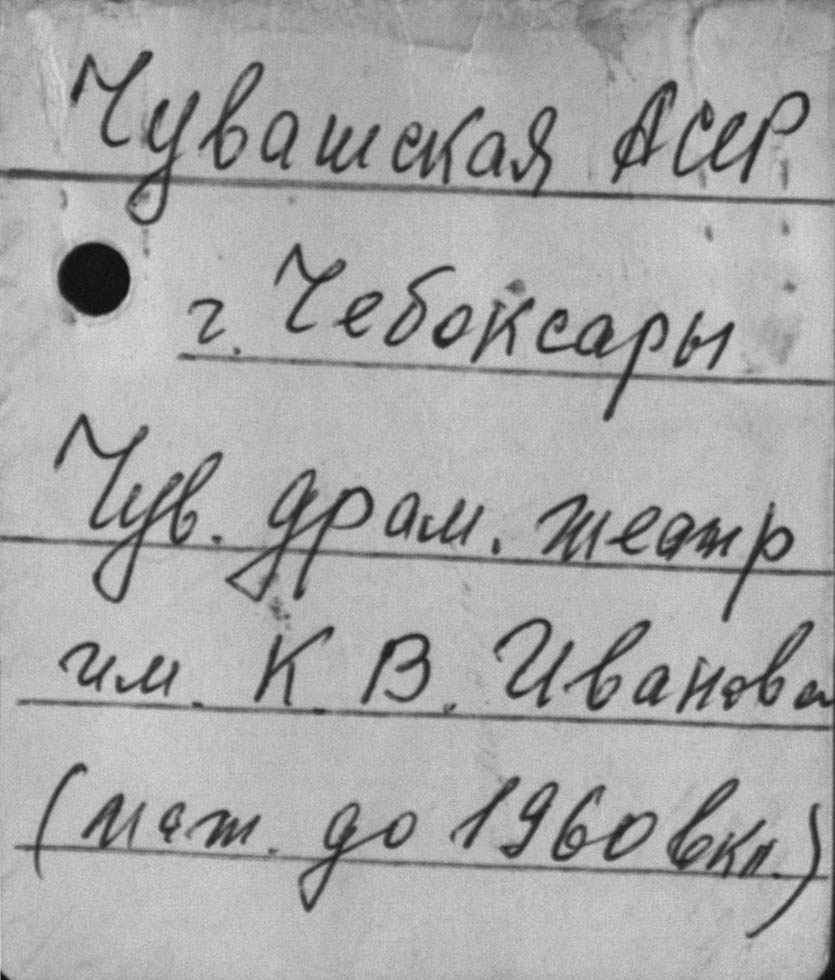 Чувашская АССР
г. Чебоксары
Чув. драм. театр
им. К. В. Иванова
(мат. до 1960 вкл.)